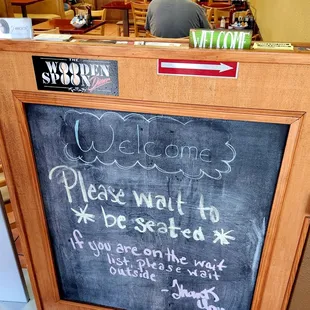 WELCOME
THE WOODEN
SPOON Diner
Welcome
Please wait to
* be seated *
if you are on the wait
list, please wait
outside
- Thank
You